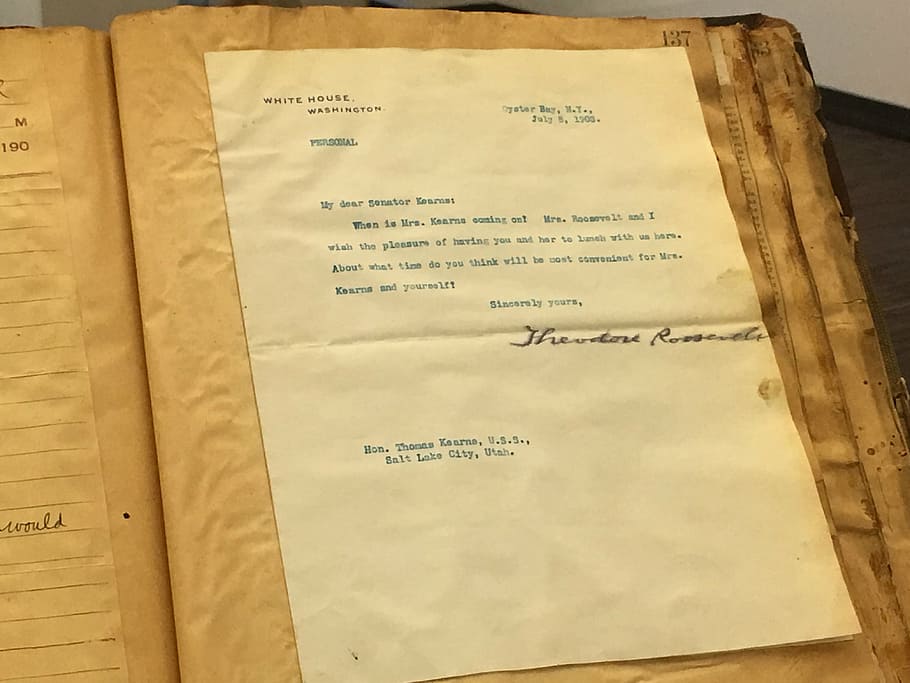 R
M
190
would
137
WHITE HOUSE,
WASHINGTON.
Oyster Bay, N.Y.,
July 8, 1903.
PERSONAL
My dear Senator Kearns:
When is Mrs. Kearns coming on? Mrs. Roosevelt and I
wish the pleasure of having you and her to lunch with us here.
About what time do you think will be most convenient for Mrs.
Kearns and yourself?
Sincerely yours,
Theodore Roosevelt
Hon. Thomas Kearns, U.S.S.,
Salt Lake City, Utah.